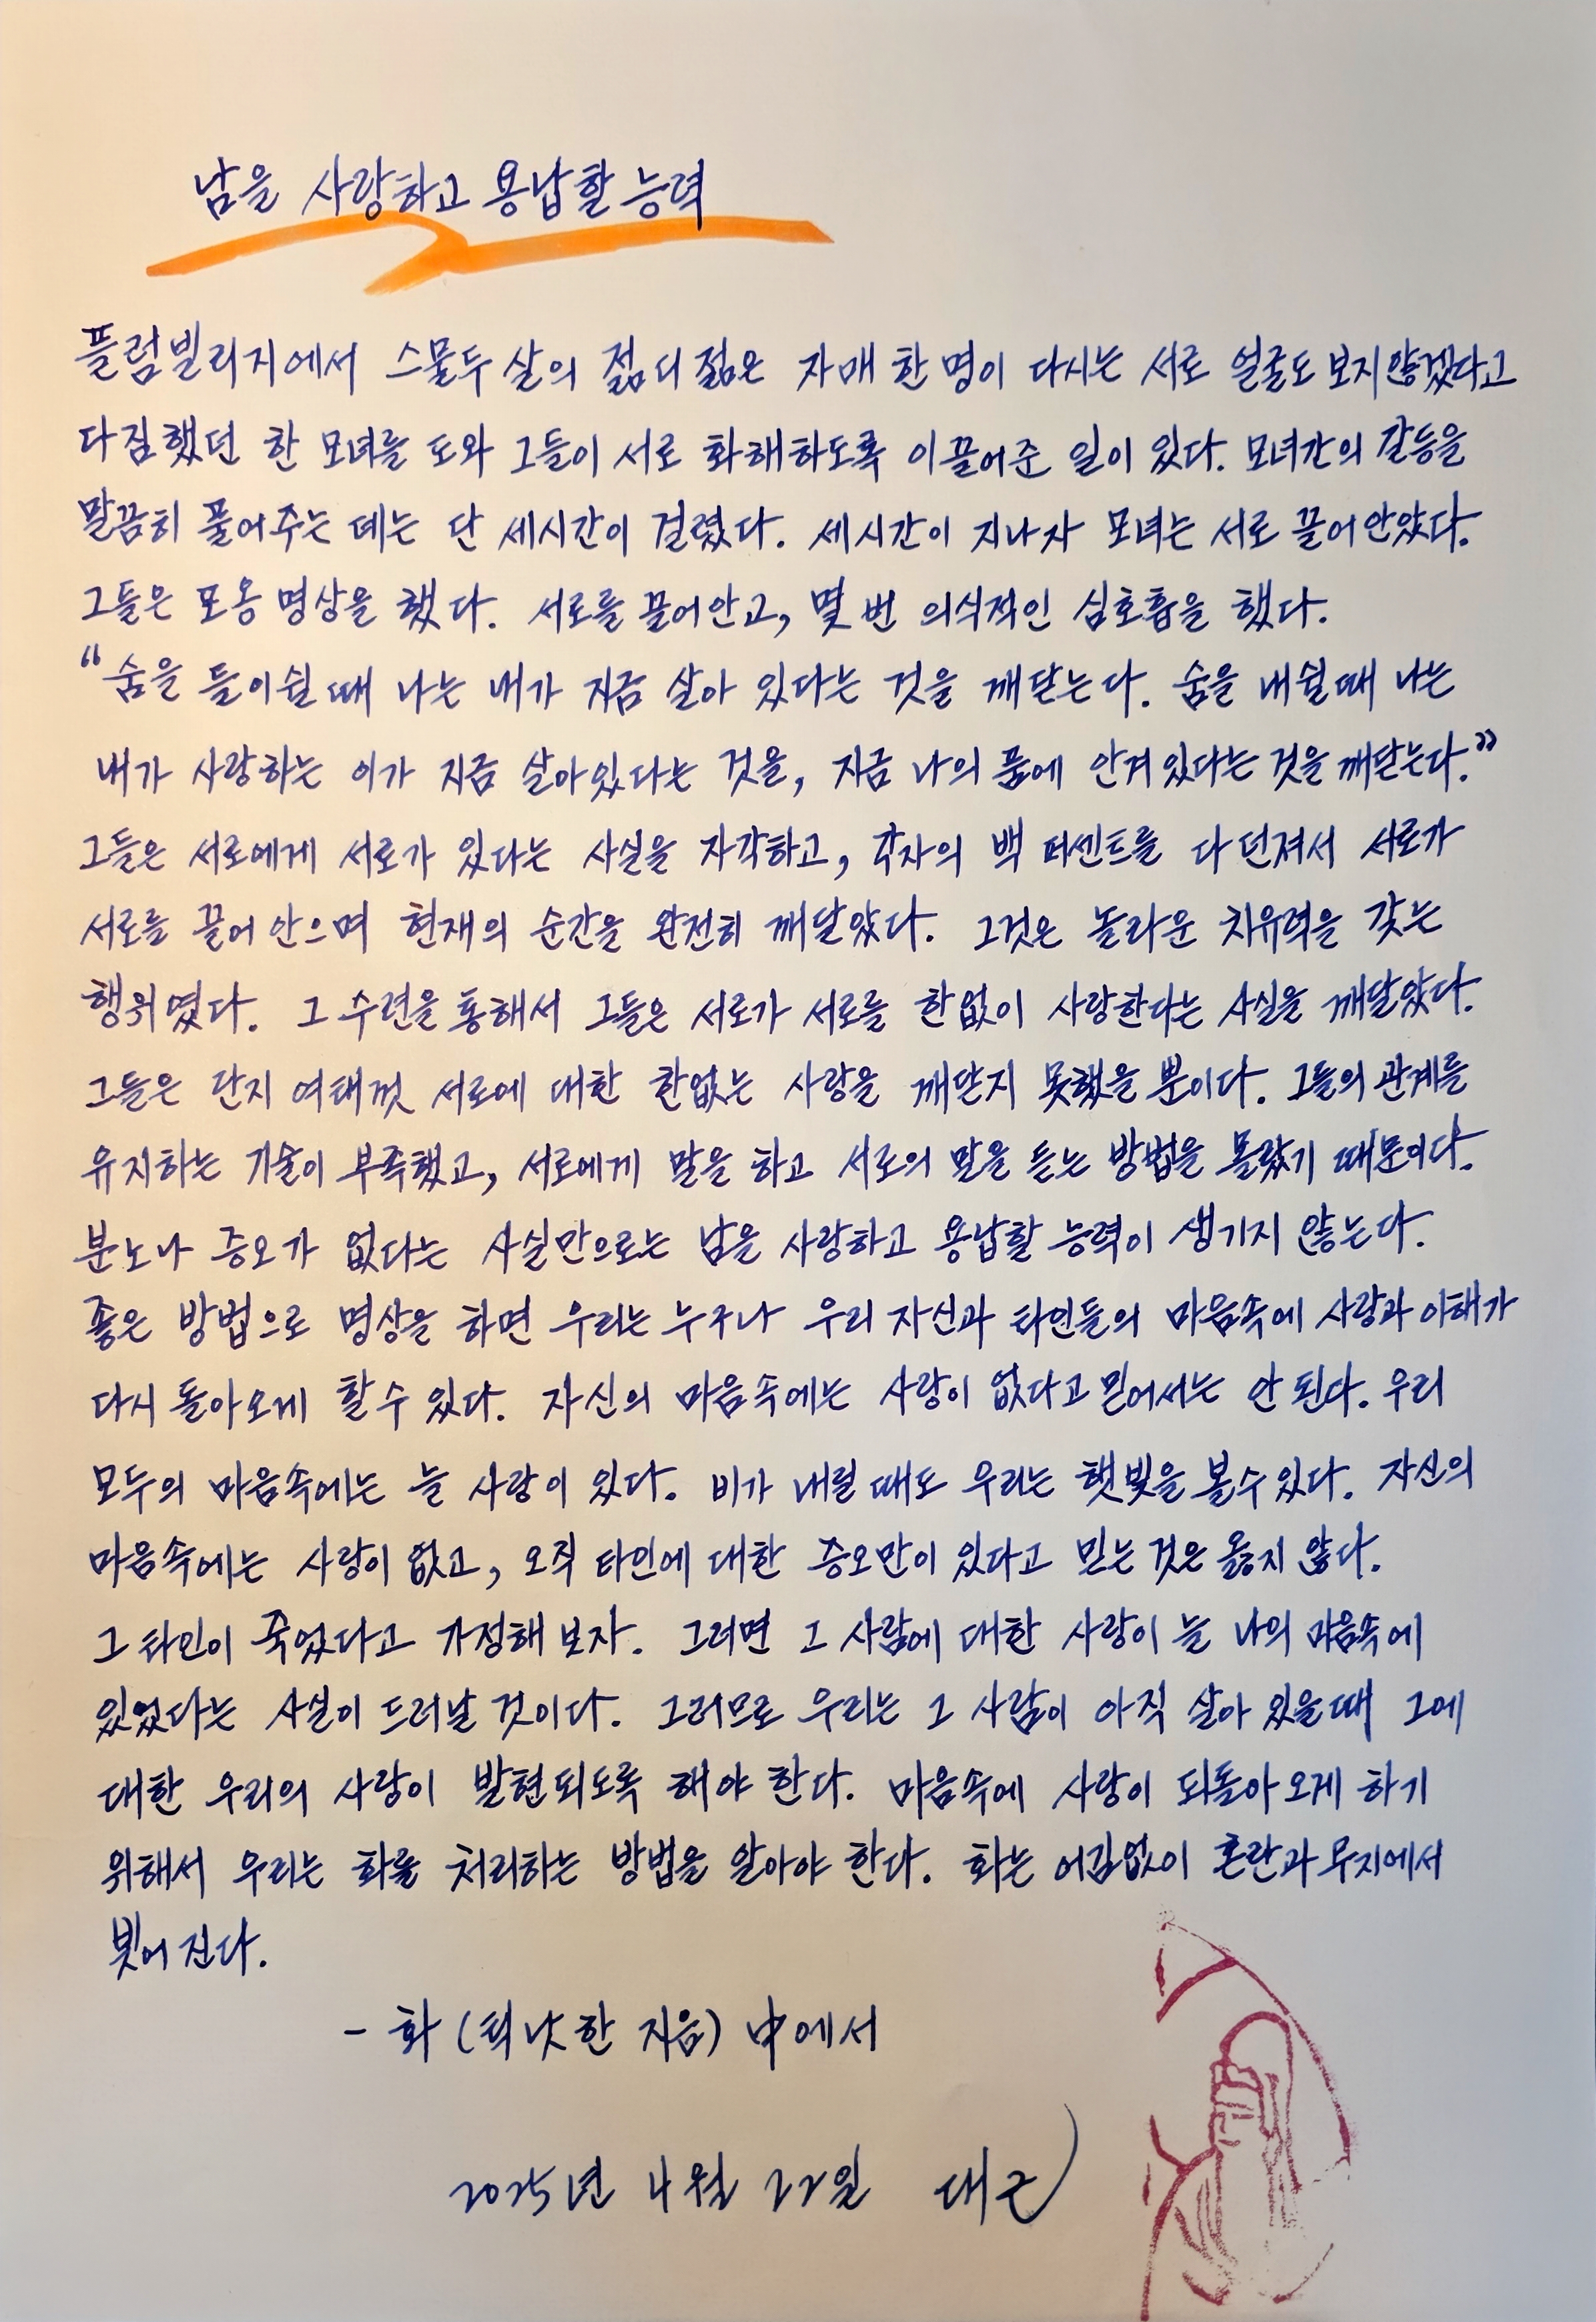 남을 사랑하고 용납할 능력
플럼빌리지에서 스물두 살의 젊디 젊은 자매 한 명이 다시는 서로 얼굴도 보지 않겠다고
다짐했던 한 모녀를 도와 그들이 서로 화해하도록 이끌어준 일이 있다. 모녀간의 갈등을
말끔히 풀어주는 데는 단 세시간이 걸렸다. 세시간이 지나자 모녀는 서로 끌어안았다.
그들은 포옹 명상을 했다. 서로를 끌어안고, 몇 번 의식적인 심호흡을 했다.
“숨을 들이쉴 때 나는 내가 지금 살아 있다는 것을 깨닫는다. 숨을 내쉴 때 나는
내가 사랑하는 이가 지금 살아있다는 것을, 지금 나의 품에 안겨 있다는 것을 깨닫는다.”
그들은 서로에게 서로가 있다는 사실을 자각하고, 각자의 백 퍼센트를 다 던져서 서로가
서로를 끌어 안으며 현재의 순간을 완전히 깨달았다. 그것은 놀라운 치유력을 갖는
행위였다. 그 수련을 통해서 그들은 서로가 서로를 한없이 사랑한다는 사실을 깨달았다.
그들은 단지 여태껏 서로에 대한 한없는 사랑을 깨닫지 못했을 뿐이다. 그들의 관계를
유지하는 기술이 부족했고, 서로에게 말을 하고 서로의 말을 듣는 방법을 몰랐기 때문이다.
분노나 증오가 없다는 사실만으로는 남을 사랑하고 용납할 능력이 생기지 않는다.
좋은 방법으로 명상을 하면 우리는 누구나 우리 자신과 타인들의 마음속에 사랑과 이해가
다시 돌아오게 할 수 있다. 자신의 마음속에는 사랑이 없다고 믿어서는 안 된다. 우리
모두의 마음속에는 늘 사랑이 있다. 비가 내릴 때도 우리는 햇빛을 볼 수 있다. 자신의
마음속에는 사랑이 없고, 오직 타인에 대한 증오만이 있다고 믿는 것은 옳지 않다.
그 타인이 죽었다고 가정해 보자. 그러면 그 사람에 대한 사랑이 늘 나의 마음속에
있었다는 사실이 드러날 것이다. 그러므로 우리는 그 사람이 아직 살아 있을 때 그에
대한 우리의 사랑이 발현되도록 해야 한다. 마음속에 사랑이 되돌아 오게 하기
위해서 우리는 화를 처리하는 방법을 알아야 한다. 화는 어김없이 혼란과 무지에서
빚어 진다.
- 화 (틱낫한 지음) 中에서
2025년 4월 22일 대근